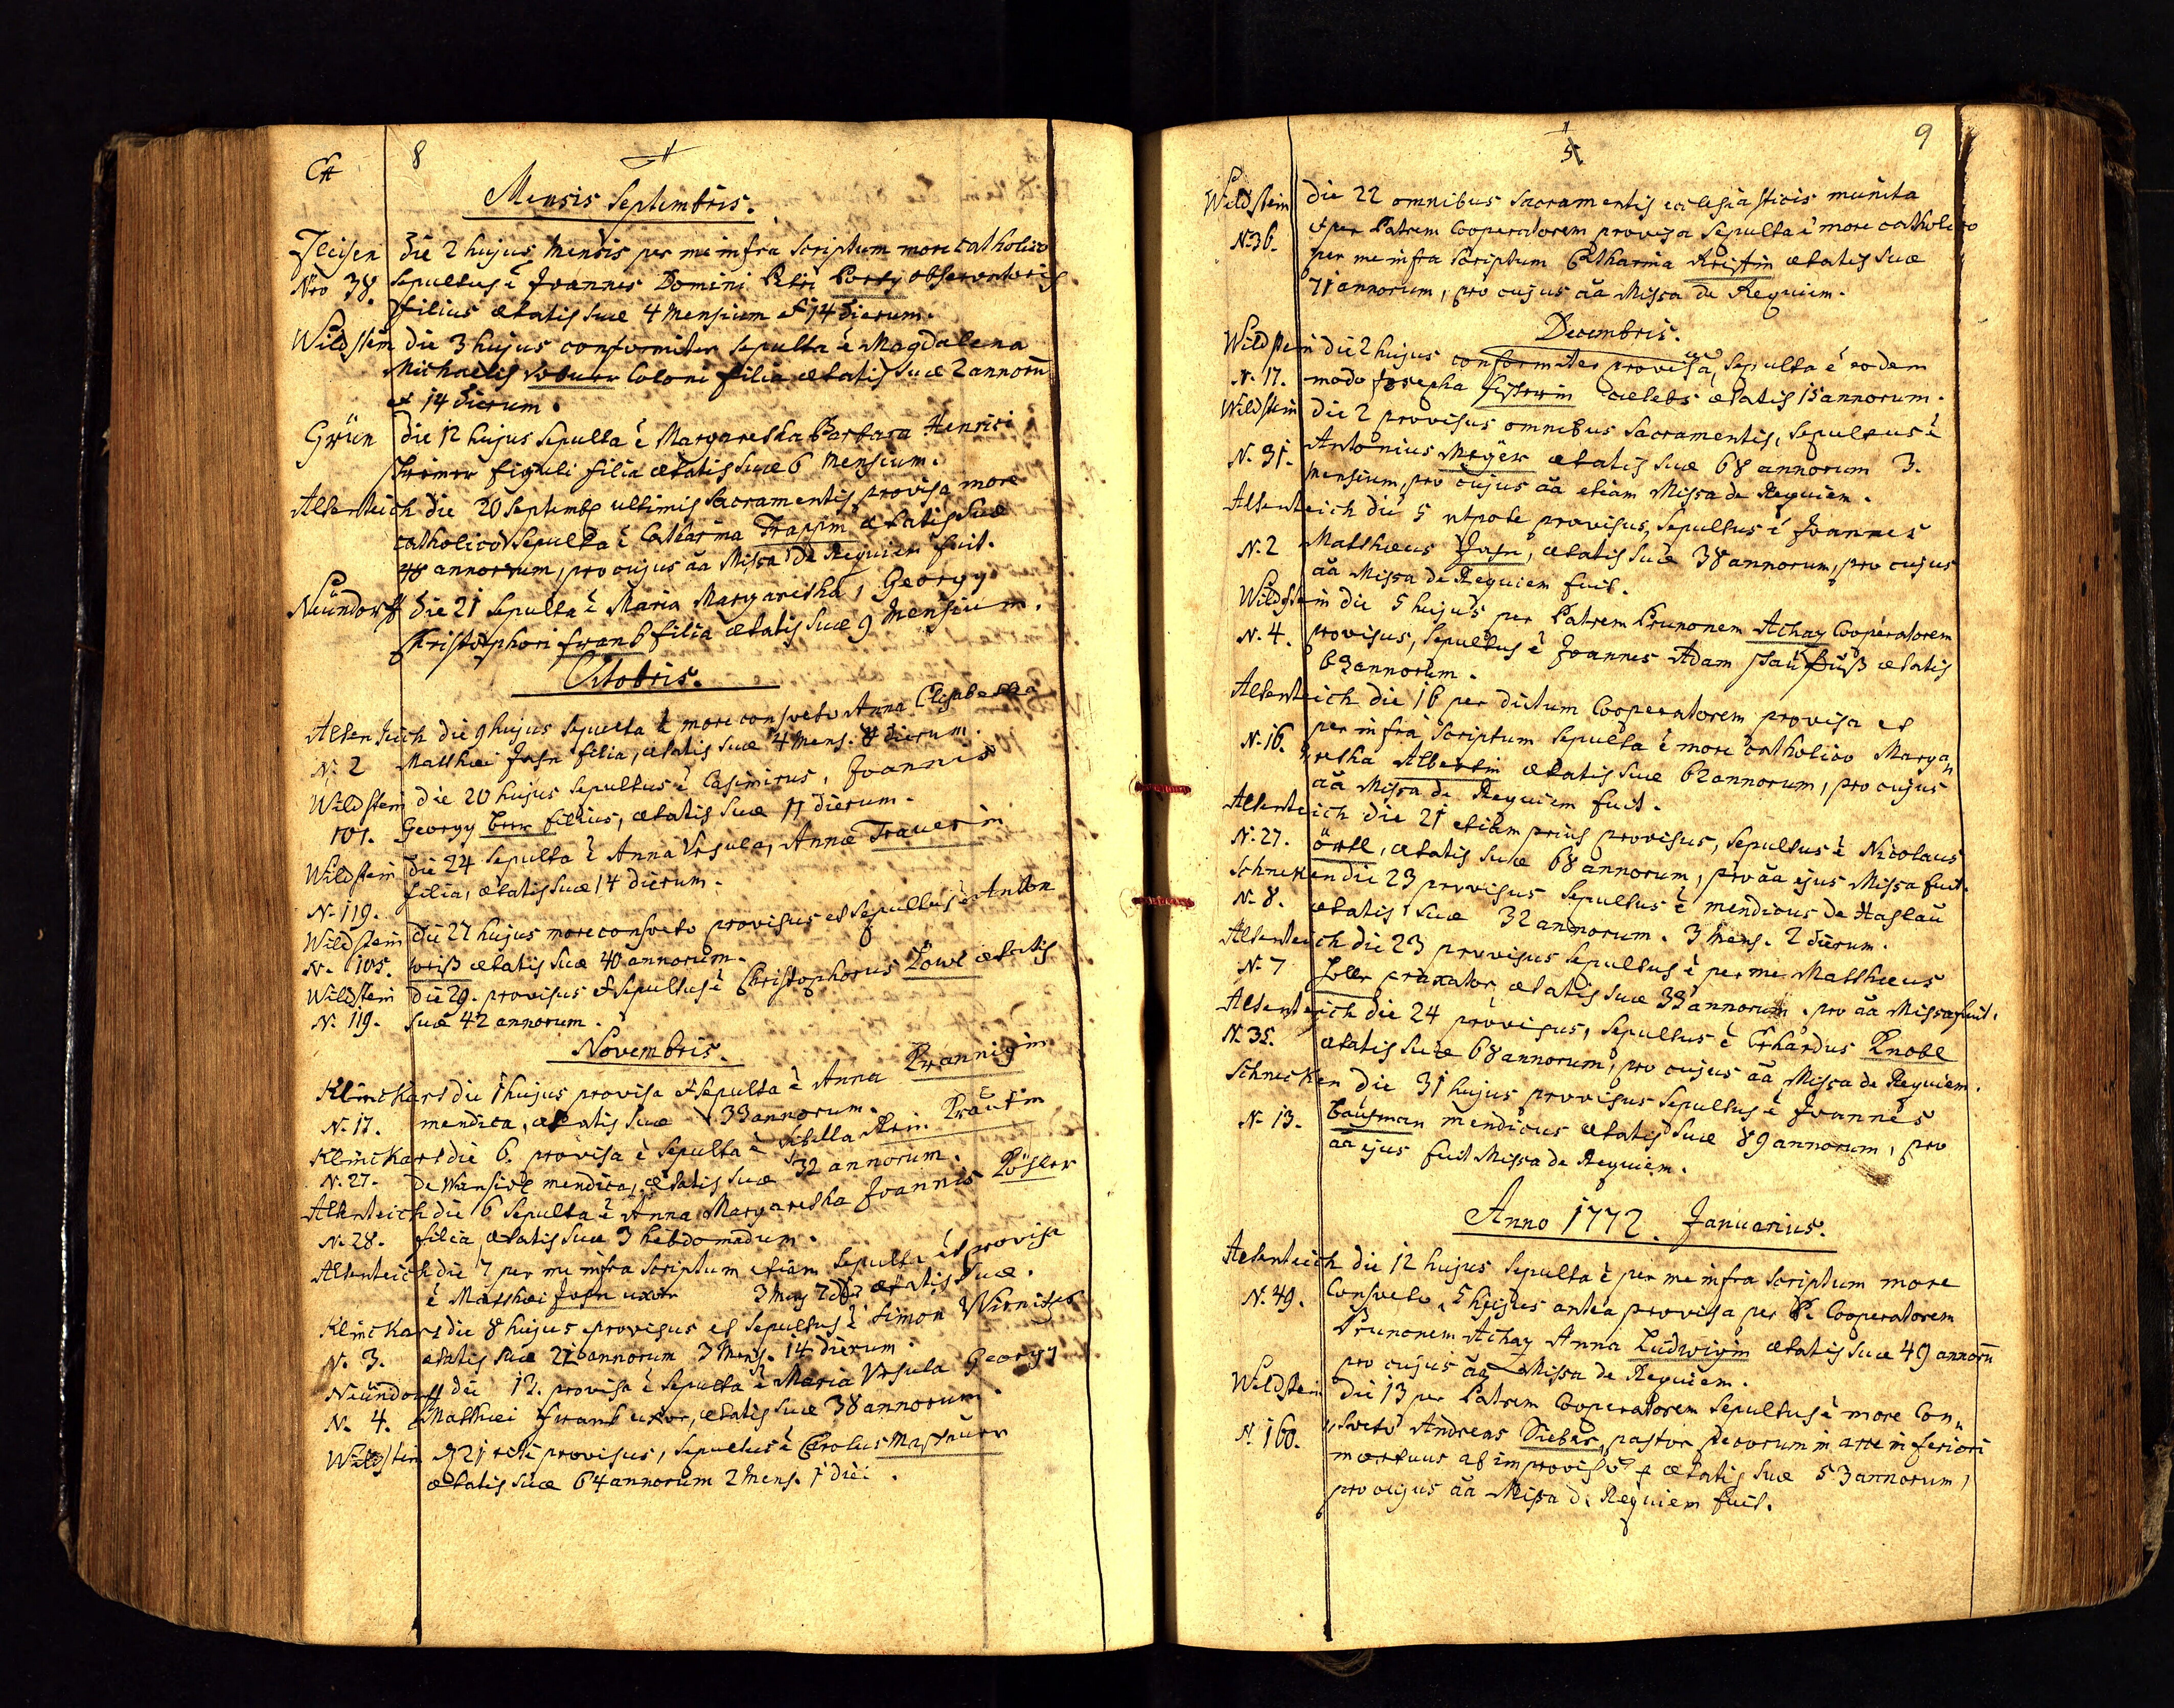 8
Mensis Septembris.
Fleisen die 2 hujus Mensis per me infra scriptum more catholico
Nro 38. sepultus è Joannes Domini Petri observatoris
filius ætatis suæ 4 mensium et 14 dierum.
Wildstein die 3 hujus conformiter sepulta è Magdalena
Michaelis coloni filia ætatis suæ 2 annorū
et 14 dierum.
Grün die 12 hujus sepulta è Margaretha Barbara Henrici
figuli filia ætatis suæ 6 mensium.
Altenteich die 20 Septemb ultimis sacramentis provisa more
catholico sepulta è Catharina ætatis suæ
48 annorum, pro cujus aa Missa de Requiem fuit.
Neündorff die 21 sepulta è Maria Margaretha, Georgy
Christophori filia ætatis suæ 9 mensium.
Octobris.
Altenteich die 9 hujus sepulta è more consveto Anna Elisabetha
N. 2 Matthæi Jahn filia, ætatis suæ 4 mens. 8 dierum.
Wildstein die 20 hujus sepultus è Casimirus, Joannis
101. Georgy filius, ætatis suæ 11 dierum.
Wildstein die 24 sepulta è Anna Ursula, Annæ Trauerin
N. 119. filia, ætatis suæ 14 dierum.
Wildstein die 27 hujus more consveto provisus et sepultus è Anton
N. 105. weiß ætatis suæ 40 annorum.
Wildstein die 29. provisus et sepultus è Christophorus Löwl ætatis
N. 119. suæ 42 annorum.
Novembris.
Klinckart die 1 hujus provisa et sepulta è Anna
N. 17. mendica, ætatis suæ 33 annorum.
Klinckart die 6. provisa è sepulta è Sibilla
N. 27. de mendica, ætatis suæ 32 annorum.
Altenteich die 6 sepulta è Anna Margaretha Joannis Lösler
N. 28. filia, ætatis suæ 3 hebdomadum.
Altenteich die 7 per me infra scriptum etiam sepulta et provisa
è Matthæi Jahn uxor 3 mens ætatis suæ.
Klinckart die 8 hujus provisus et sepultus è Simon
N. 3. ætatis suæ annorum 3 mens. 14 dierum.
Neündorff die 13. provisa è sepulta è Maria Ursula Georgy
N. 4. Matthæi uxor, ætatis suæ 38 annorum.
Wildstein 21 rite provisus, sepultus è Carolus
ætatis suæ 64 annorum 2 mens. 1 diei.
9
5
Wildstein die 22 omnibus sacramentis ecclesiasticis munita
N. 36. et per Patrem Cooperatorem provisa sepulta è more catholico
per me infra scriptum Catharina Kristin ætatis suæ
71 annorum, pro cujus aa Missa de Requiem.
Decembris.
Wildstein die 2 hujus conformiter provisa, sepulta è eodem
N. 17. modo Josepha cælebs ætatis 15 annorum.
Wildstein die 2 provisus omnibus sacramentis, sepultus è
N. 31. Antonius Meÿer ætatis suæ 68 annorum 3.
mensium, pro cujus aa etiam Missa de Requiem.
Altenteich die 5 utpote provisus, sepultus è Joannes
N. 2 Matthæus Jahn, ætatis suæ 38 annorum, pro cujus
aa Missa de Requiem fuit.
Wildstein die 5 hujus per Patrem Prunonem Achaz Cooperatorem
N. 4. provisus, sepultus è Joannes Adam ætatis
63 annorum.
Altenteich die 16 per dictum Cooperatorem provisa et
N. 16. per infra scriptum sepulta è more catholico Marga„
retha Albertin ætatis suæ 62 annorum, pro cujus
aa Missa de Requiem fuit.
Altenteich die 21 etiam prius provisus, sepultus è Nicolaus
N. 27. örtl, ætatis suæ 68 annorum, pro aa ejus Missa fuit.
Schnecken die 23 provisus sepultus è mendicus de Haslau
N. 8. ætatis suæ 32 annorum. 3 mens. 2 dierum.
Altenteich die 23 provisus sepultus è per me Matthæus
N. 7 praxator ætatis suæ 33 annorum. pro aa Missa fuit.
Altenteich die 24 provisus, sepultus è Erhardus Knobl
N. 35. ætatis suæ 68 annorum, pro cujus aa Missa de Requiem.
Schnecken die 31 hujus provisus sepultus è Joannes
N. 13. baüman mendicus ætatis suæ 89 annorum, pro
aa ejus fuit Missa de Requiem.
Anno 1772. Januarius.
Altenteich die 12 hujus sepulta è per me infra scriptum more
N. 49. Consveto, 5 hujus antea provisa per P. Cooperatorem
Prunonem Achaz Anna Ludwigin ætatis suæ 49 annorū
pro cujus aa Missa de Requiem.
Wildstein die 13 per Patrem Cooperatorem sepultus è more Con„
N. 160. „sveto Andreas Dieber, pastor pecorum in arce inferiori
mortuus ab improviso ætatis suæ 53 annorum,
pro cujus aa Missa de Requiem fuit.